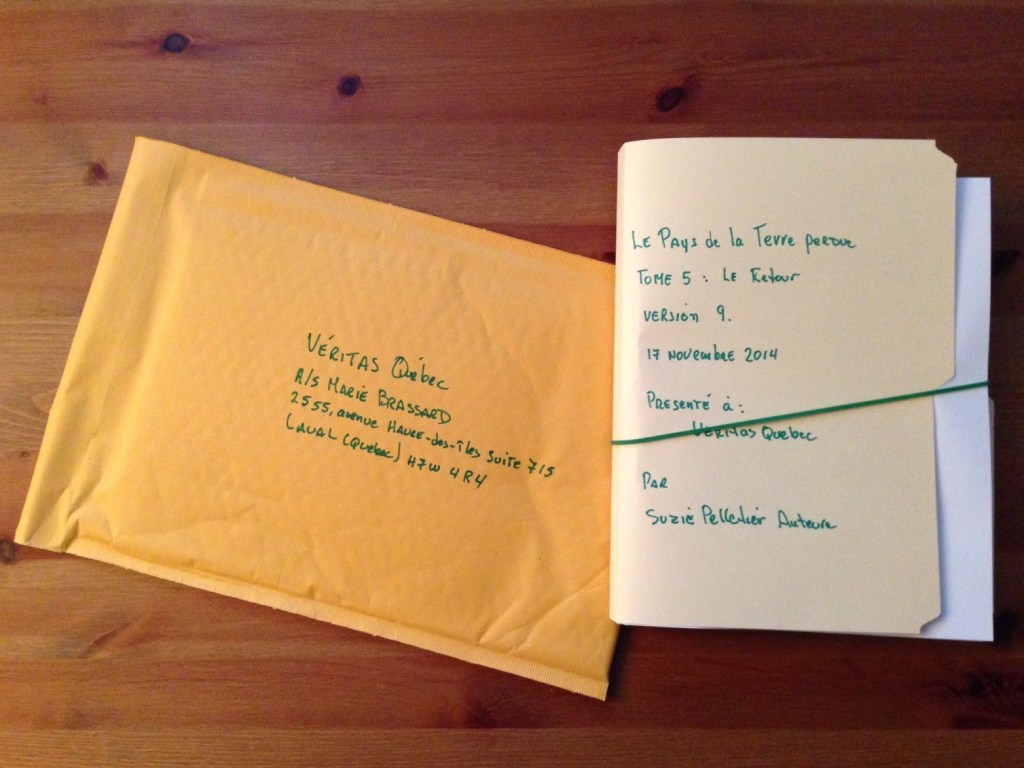 Véritas Québec
A/S Marie Brassard
2555, avenue Havre-des-Îles suite 715
Laval (Québec) H7W 4R4
Le Pays de la Terre perdue
Tome 5 : Le Retour
Version 9.
17 novembre 2014
Présenté à :
Véritas Québec
Par
Suzie Pelletier Auteure